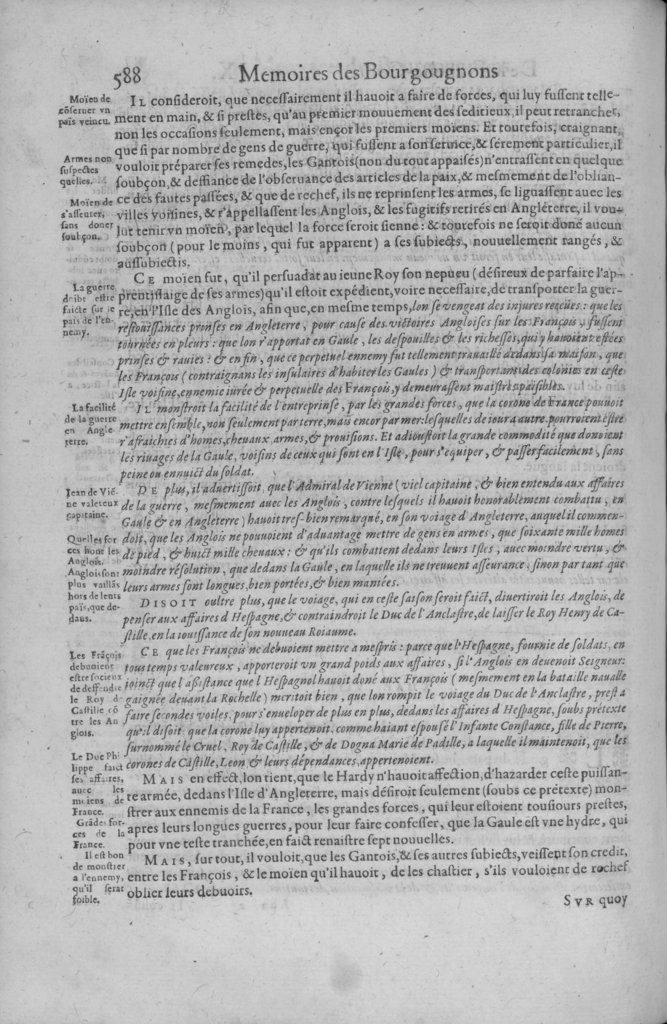 588 Memoires des Bourgougnons
Moïen de
cõseruer vn
païs veincu.
IL consideroit, que necessairement il hauoit a faire de forces, qui luy fussent telle-
ment en main, & si prestes, qu'au premier mouuement des seditieux, il peut retrancher,
non les occasions seulement, mais ençor les premiers moïens. Et toutefois, craignant,
que si par nombre de gens de guerre, qui fussent a son seruice, & sèrement particulier, il
Armes non
suspectes
quelles.
vouloit préparer ses remedes, les Gantois (non du tout appaisés) n'entrassent en quelque
soubçon, & deffiance de l'obseruance des articles de la paix, & mesmement de l'oblian-
ce des fautes passées, & que de rechef, ils ne reprinsent les armes, se liguassent auec les
Moïen de
s'asseurer,
sans doner
soubçon.
villes voisines, & r'appellassent les Anglois, & les fugitifs retirés en Angléterre, il vou-
lut tenir vn moïen, par lequel la force seroit sienne: & toutefois ne seroit doné aucun
soubçon (pour le moins, qui fut apparent) a ses subiects, nouuellement rangés, &
aussubiectis.
CE moïen fut, qu'il persuadat au ieune Roy son nepueu (désireux de parfaire l'ap-
La guerre
doibt estre
faicte sur le
païs de l'en-
nemy.
prentissaige de ses armes) qu'il estoit expédient, voire necessaire, de transporter la guer-
re, en l'Isle des Anglois, afin que, en mesme temps, lon se vengeat des injures reçeües: que les
resiouïssances prinses en Angleterre, pour cause des victoires Angloises sur les François, fussent
tournées en pleurs: que lon r'apportat en Gaule, les despouilles & les richesses, qui y hauoient estées
prinses & rauies: & en fin, que ce perpetuel ennemy fut tellement trauaillé dedans sa maison, que
les François (contraignans les insulaires d'habiter les Gaules) & transportans des colonies en ceste
Isle voisine, ennemie iurée & perpetuelle des François, y demeurassent maistres paisibles.
La facilité
de la guerre
en Angle-
terre.
IL monstroit la facilité de l'entreprinse, par les grandes forces, que la corone de France pouuoit
mettre ensemble, non seulement par terre, mais encor par mer: lesquelles de iour a autre pourroient estre
r'afraichies d'homes, cheuaux, armes, & prouisions. Et adioustoit la grande commodité que donoient
les riuages de la Gaule, voisins de ceux qui sont en l'Isle, pour s'equiper, & passer facilement, sans
peine ou ennuict du soldat.
Jean de Viẽ-
ne valeureux
capitaine.
DE plus, il aduertissoit, que l'Admiral de Vienne (viel capitaine, & bien entendu aux affaires
de la guerre, mesmement auec les Anglois, contre lesquels il hauoit honorablement combattu, en
Gaule & en Angleterre) hauoit tres-bien remarqué, en son voiage d'Angleterre, auquel il commen-
Quelles for
ces hont les
Anglois.
doit, que les Anglois ne pouuoient d'aduantage mettre de gens en armes, que soixante mille homes
de pied, & huict mille cheuaux: & qu'ils combattent dedans leurs Isles, auec moindre vertu, &
Anglois sont
plus vaillãs
hors de leurs
païs, que de-
dans.
moindre résolution, que dedans la Gaule, en laquelle ils ne treuuent asseurance, sinon par tant que
leurs armes sont longues, bien portées, & bien maniées.
DISOIT oultre plus, que le voiage, qui en ceste saison seroit faict, diuertiroit les Anglois, de
penser aux affaires d'Hespagne, & contraindroit le Duc de l'Anclastre, de laisser le Roy Henry de Ca-
stille, en la iouïssance de son nouueau Roiaume.
Les Frãçois
debuoient
estre soucieux
de deffendre
le Roy de
Castille cõ
tre les An
glois.
CE que les François ne debuoient mettre a mespris: parce que l'Hespagne, fournie de soldats, en
tous temps valeureux, apporteroit vn grand poids aux affaires, si l'Anglois en deuenoit Seigneur:
joinct que l'assistance que l'Hespagnol hauoit doné aux François (mesmement en la bataille naualle
gaignée deuant la Rochelle) meritoit bien, que lon rompit le voiage du Duc de l'Anclastre, prest a
faire secondes voiles, pour s'enueloper de plus en plus, dedans les affaires d'Hespagne, soubs prétexte
qu'il disoit que la corone luy appertenoit, comme haiant espousé l'Infante Constance, fille de Pierre,
surnommé le Cruel, Roy de Castille, & de Dogna Marie de Padille, a laquelle il maintenoit, que les
corones de Castille, Leon, & leurs dépendances, appertenoient.
Le Duc Phi
lippe faict
ses affaires,
auec les
moiens de
France.
MAIS en effect, lon tient, que le Hardy n'hauoit affection, d'hazarder ceste puissan-
te armée, dedans l'Isle d'Angleterre, mais désiroit seulement (soubs ce prétexte) mon-
strer aux ennemis de la France, les grandes forces, qui leur estoient tousiours prestes,
Grãdes for-
ces de la
France.
apres leurs longues guerres, pour leur faire confesser, que la Gaule est vne hydre, qui
pour vne teste tranchée, en faict renaistre sept nouuelles.
Il est bon
de monstrer
a l'ennemy,
qu'il seroit
foible.
MAIS, sur tout, il vouloit, que les Gantois, & ses autres subiects, veissent son credit,
entre les François, & le moïen qu'il hauoit, de les chastier, s'ils vouloient de rechef
oblier leurs debuoirs.
SVR quoy